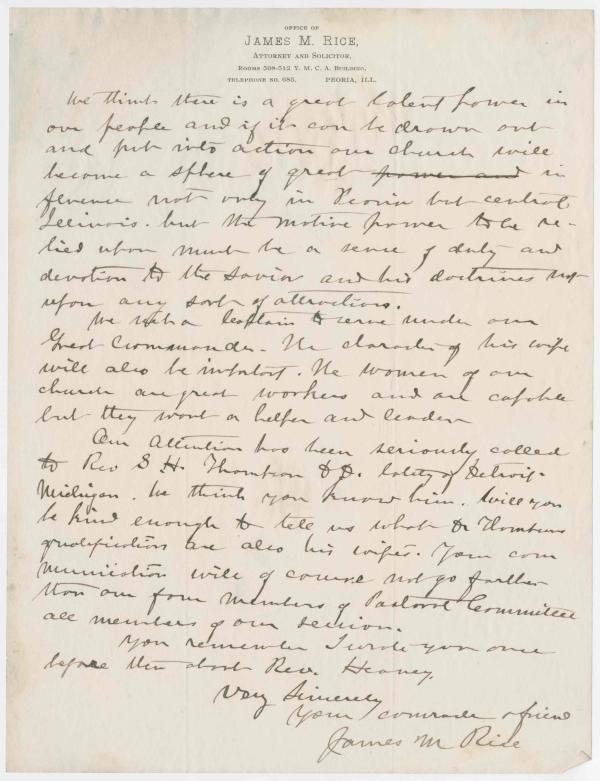 OFFICE OF
JAMES M. RICE,
ATTORNEY AND SOLICITOR,
ROOMS 508-512 Y. M. C. A. BUILDING,
TELEPHONE NO. 685. PEORIA, ILL.
We think there is a great latent power in
our people and if it can be drawn out
and put into action our church will
become a sphere of great power and in
fluence not only in Peoria but central
Illinois. but the motive power to be re-
lied upon must be a sense of duty and
devotion to the Savior and his doctrines not
upon any sort of attractions.
We want a Captain to serve under our
Great Commander. The character of his wife
will also be important. The women of our
church are great workers and are capable
but they want a helper and leader
Our attention has been seriously called
to Rev S. H. Thompson D. D. lately of Detroit-
Michigan. We think you know him. Will you
be kind enough to tell us what Dr Thompsons
qualifications are also his wifes. Your com
munication will of course not go farther
than our four members of Pastoral Committee
all members of our Session.
You remember I wrote you once
before then about Rev. Heaney.
Very Sincerely
Your comrade & friend
James M Rice